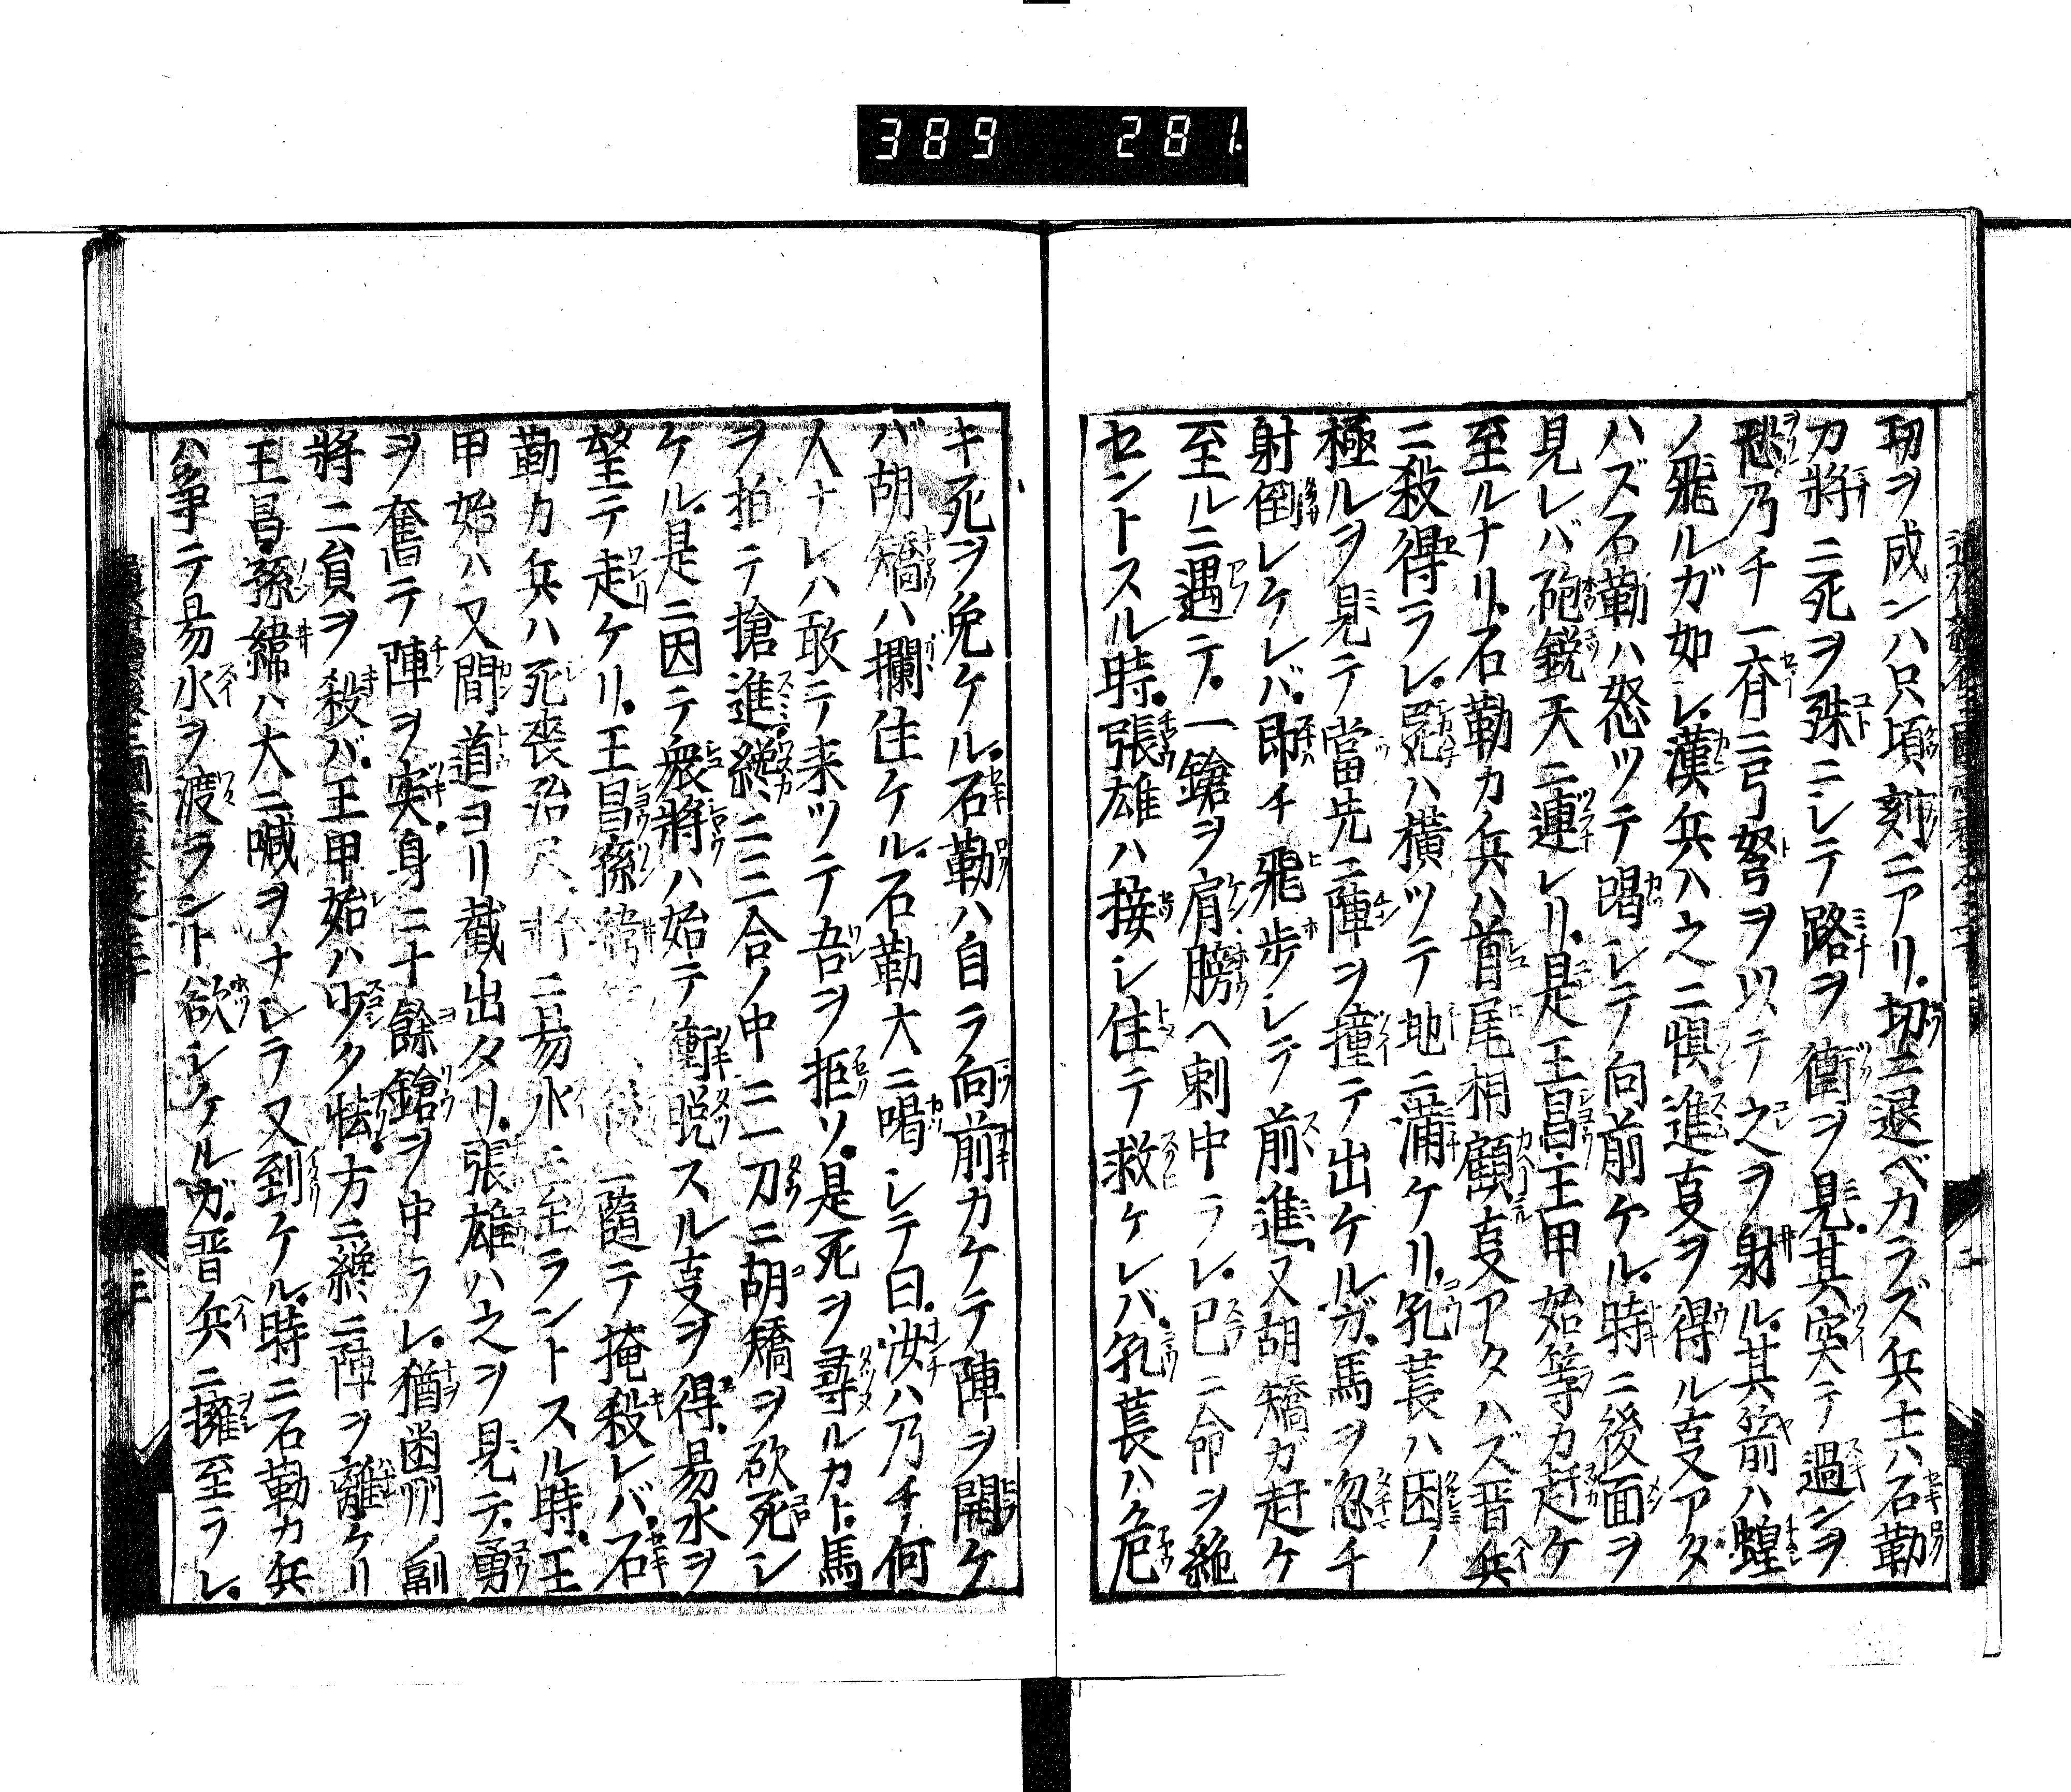 389 281
功ヲ成ンハ只頃刻ニアリ切ニ退ベカラズ兵士ハ石勒
カ將ニ死ヲ殊ニシテ路ヲ衝ヲ見其突テ過ンヲ
恐乃チ一斉ニ弓弩ヲ以テ之ヲ射ル其箭ハ蝗
ノ飛ルガ如シ漢兵ハ之ニ惧進叓ヲ得ル叓アタ
ハズ石勒ハ怒ツテ喝シテ向前ケル時ニ後面ヲ
見レバ砲鋭天ニ連レリ是王昌王甲始等カ赶ケ
至ルナリ石勒カ兵ハ首尾相顧叓アタハズ晋兵
ニ殺得ラレ死ハ横ツテ地ニ満ケリ孔萇ハ困ノ
極ルヲ見テ當先ニ陣ヲ撞テ出ケルガ馬ヲ忽チ
射倒レケレバ即チ飛歩シテ前進又胡矯ガ赶ケ
至ルニ遇テ一鎗ヲ肩膀ヘ刺中ラレ已ニ命ヲ絶
セントスル時張雄ハ接シ住テ救ケレバ孔萇ハ危
キ死ヲ免ケル石勒ハ自ラ向前カケテ陣ヲ開ケ
バ胡矯ハ攔住ケル石勒大ニ喝シテ曰汝ハ乃チ何
人ナレハ敢テ来ツテ吾ヲ拒ソ是死ヲ尋ルカト馬
ヲ拍テ搶進纔ニ三合ノ中ニ一刀ニ胡矯ヲ砍死シ
ケル是ニ因テ衆將ハ始テ衝脱スル叓ヲ得易水ヲ
望テ走ケリ王昌孫緯 後ニ隨テ掩殺レバ石
勒カ兵ハ死喪殆尽將ニ易水ニ至ラントスル時王
甲始ハ又間道ヨリ截出タリ張雄ハ之ヲ見テ勇
ヲ奮テ陣ヲ突身ニ十餘鎗ヲ中ラレ猶幽州ノ副
將二員ヲ殺バ王甲始ハ少ク怯方ニ纔ニ陣ヲ離ケリ
王昌孫緯ハ大ニ喊ヲナシラ又到ケル時ニ石勒カ兵
ハ争テ易水ヲ渡ラント欲シケルガ晋兵ニ擁至ラレ